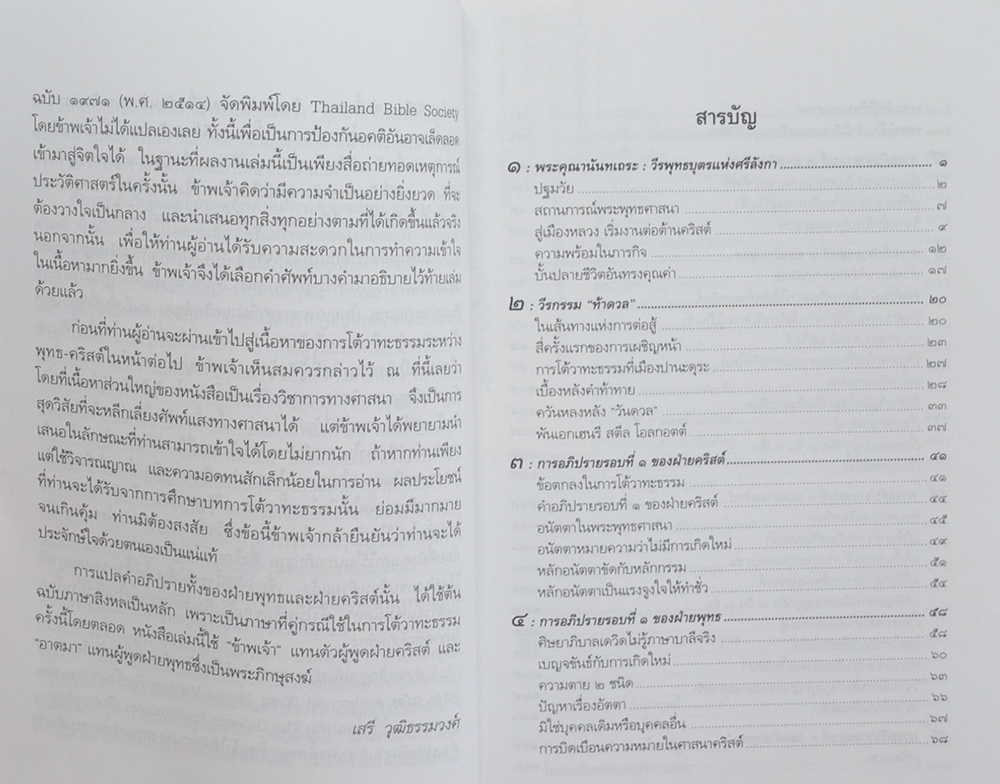 ฉบับ ๑๙๗๑ (พ.ศ. ๒๕๑๔) จัดพิมพ์โดย Thailand Bible Society
โดยข้าพเจ้าไม่ได้แปลเองเลย ทั้งนี้เพื่อเป็นการป้องกันอคติอันอาจเล็ดลอด
เข้ามาสู่จิตใจได้ ในฐานะที่ผลงานเล่มนี้เป็นเพียงสื่อถ่ายทอดเหตุการณ์
ประวัติศาสตร์ในครั้งนั้น ข้าพเจ้าคิดว่ามีความจำเป็นอย่างยิ่งยวด ที่จะ
ต้องวางใจเป็นกลาง และนำเสนอทุกสิ่งทุกอย่างตามที่ได้เกิดขึ้นแล้วจริง
นอกจากนั้น เพื่อให้ท่านผู้อ่านได้รับความสะดวกในการทำความเข้าใจ
ในเนื้อหามากยิ่งขึ้น ข้าพเจ้าจึงได้เลือกคำศัพท์บางคำมาอธิบายไว้ท้ายเล่ม
ด้วยแล้ว
ก่อนที่ท่านผู้อ่านจะผ่านเข้าไปสู่เนื้อหาของการโต้วาทะธรรมระหว่าง
พุทธ-คริสต์ในหน้าต่อไป ข้าพเจ้าเห็นสมควรกล่าวไว้ ณ ที่นี้เลยว่า
โดยที่เนื้อหาส่วนใหญ่ของหนังสือเป็นเรื่องวิชาการทางศาสนา จึงเป็นการ
สุดวิสัยที่จะหลีกเลี่ยงศัพท์แสงทางศาสนาได้ แต่ข้าพเจ้าได้พยายามนำ
เสนอในลักษณะที่ท่านสามารถเข้าใจได้โดยไม่ยากนัก ถ้าหากท่านเพียง
แต่ใช้วิจารณญาณ และความอดทนสักเล็กน้อยในการอ่าน ผลประโยชน์
ที่ท่านจะได้รับจากการศึกษาบทการโต้วาทะธรรมนั้น ย่อมมีมากมาย
จนเกินคุ้ม ท่านมิต้องสงสัย ซึ่งข้อนี้ข้าพเจ้ากล้ายืนยันว่าท่านจะได้
ประจักษ์ใจด้วยตนเองเป็นแน่แท้
การแปลคำอภิปรายทั้งของฝ่ายพุทธและฝ่ายคริสต์นั้น ได้ใช้ต้น
ฉบับภาษาสิงหลเป็นหลัก เพราะเป็นภาษาที่คู่กรณีใช้ในการโต้วาทะธรรม
ครั้งนี้โดยตลอด หนังสือเล่มนี้ใช้ "ข้าพเจ้า" แทนตัวผู้พูดฝ่ายคริสต์ และ
"อาตมา" แทนผู้พูดฝ่ายพุทธซึ่งเป็นพระภิกษุสงฆ์
เสรี วุฒิธรรมวงศ์
สารบัญ
๑ : พระคุณานันทเถระ : วีรพุทธบุตรแห่งศรีลังกา ๑
ปฐมวัย ๒
สถานการณ์พระพุทธศาสนา ๗
สู่เมืองหลวง เริ่มงานต่อต้านคริสต์ ๙
ความพร้อมในภารกิจ ๑๒
บั้นปลายชีวิตอันทรงคุณค่า ๑๗
๒ : วีรกรรม "ท้าดวล" ๒๐
ในเส้นทางแห่งการต่อสู้ ๒๐
สี่ครั้งแรกของการเผชิญหน้า ๒๓
การโต้วาทะธรรมที่เมืองปานะดุระ ๒๗
เบื้องหลังคำท้าทาย ๒๘
ควันหลงหลัง "วันดวล" ๓๓
พันเอกเฮนรี สตีล โอลกอตต์ ๓๗
๓ : การอภิปรายรอบที่ ๑ ของฝ่ายคริสต์ ๔๑
ข้อตกลงในการโต้วาทะธรรม ๔๑
คำอภิปรายรอบที่ ๑ ของฝ่ายคริสต์ ๔๔
อนัตตาในพระพุทธศาสนา ๔๕
อนัตตาหมายความว่าไม่มีการเกิดใหม่ ๔๙
หลักอนัตตาขัดกับหลักกรรม ๕๑
หลักอนัตตาเป็นแรงจูงใจให้ทำชั่ว ๕๔
๔ : การอภิปรายรอบที่ ๑ ของฝ่ายพุทธ ๕๘
ศิษยาภิบาลเดวิดไม่รู้ภาษาบาลีจริง ๕๘
เบญจขันธ์กับการเกิดใหม่ ๖๐
ความตาย ๒ ชนิด ๖๓
ปัญหาเรื่องอัตตา ๖๖
มิใช่บุคคลเดิมหรือบุคคลอื่น ๖๗
การบิดเบือนความหมายในศาสนาคริสต์ ๖๘